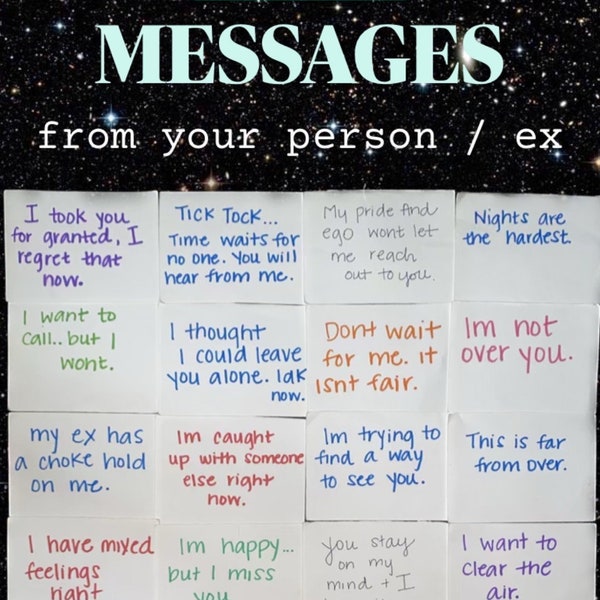 MESSAGES
from your person / ex
I took you
for granted, I
regret that
now.
TICK TOCK...
Time waits for
no one. You will
hear from me.
My pride and
ego wont let
me reach
out to you.
Nights are
the hardest.
I want to
call.. but I
wont.
I thought
I could leave
you alone. Idk
now.
Dont wait
for me. it
isnt fair.
Im not
over you.
my ex has
a choke hold
on me.
Im caught
up with someone
else right
now.
Im trying to
find a way
to see you.
This is far
from over.
I have mixed
feelings
right
Im happy...
but I miss
you.
you stay
on my
mind + I
I want to
clear the
air.